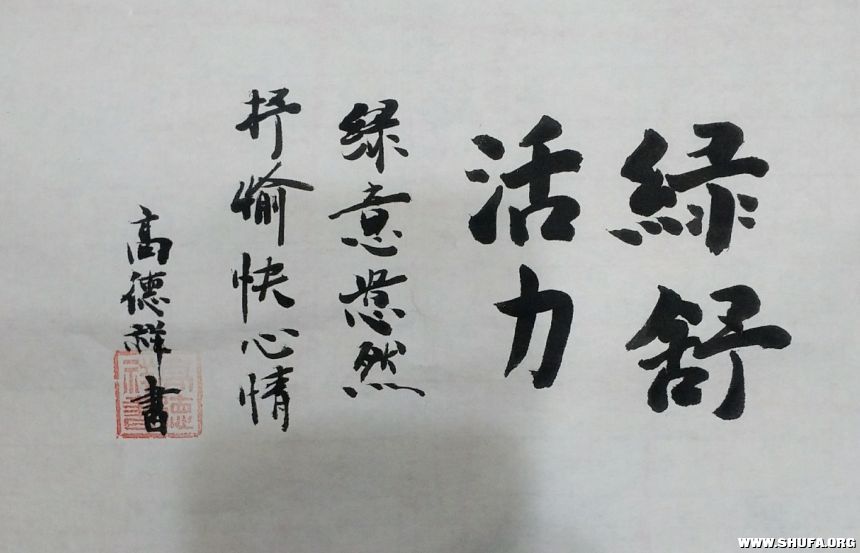 緑舒
活力
緑意然
抒愉快心情
高德祥書
WWW.SHUFA.ORG